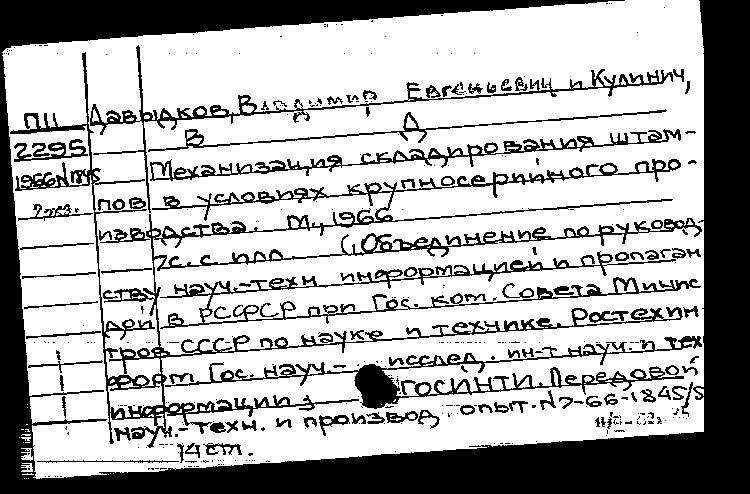 Давыдков, Владимир Евгеньевич и Кулинич,
П11
В Д
2295
Механизация складирования штам-
1966 N 1845
пов в условиях крупносерийного про-
изводства. М., 1966
7с. с илл. (Объединение по руковод-
ству науч.-техн. информацией и пропаган
дой в РСФСР при Гос. ком. Совета Минис
тров СССР по науке и технике. Ростехин
форм. Гос. науч.- исслед. ин-т науч. и тех
информации ГОСИНТИ. Передовой
науч.-техн. и производ. опыт. N 7-66-1845/5
14 см.